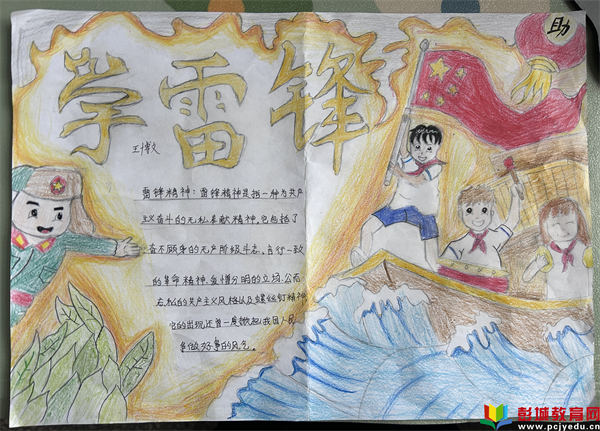 助
学雷锋
王博文
雷锋精神：雷锋精神是指一种为共产
主义奋斗的无私奉献精神,它包括了
奋不顾身的无产阶级斗志、言行一致
的革命精神、爱憎分明的立场、公而
忘私的共产主义风格以及螺丝钉精神
它的出现还曾一度掀起我国人民
争做好事的风气。
彭城教育网
www.pcjyedu.cn